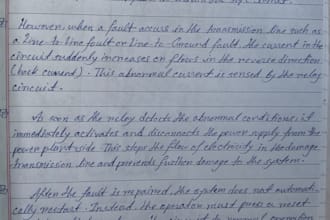 However, when a fault occurs in the transmission line such as
a Line-to-Line fault or Line-to-Ground fault, the current in the
circuit suddenly increases or flows in the reverse direction
(back current). This abnormal current is sensed by the relay
circuit.
As soon as the relay detects the abnormal conditions, it
immediately activates and disconnects the power supply from the
power plant side. This stops the flow of electricity in the damage
transmission line and prevents further damage to the system.
After the fault is repaired, the system does not automati-
cally restart. Instead, the operator must press a reset